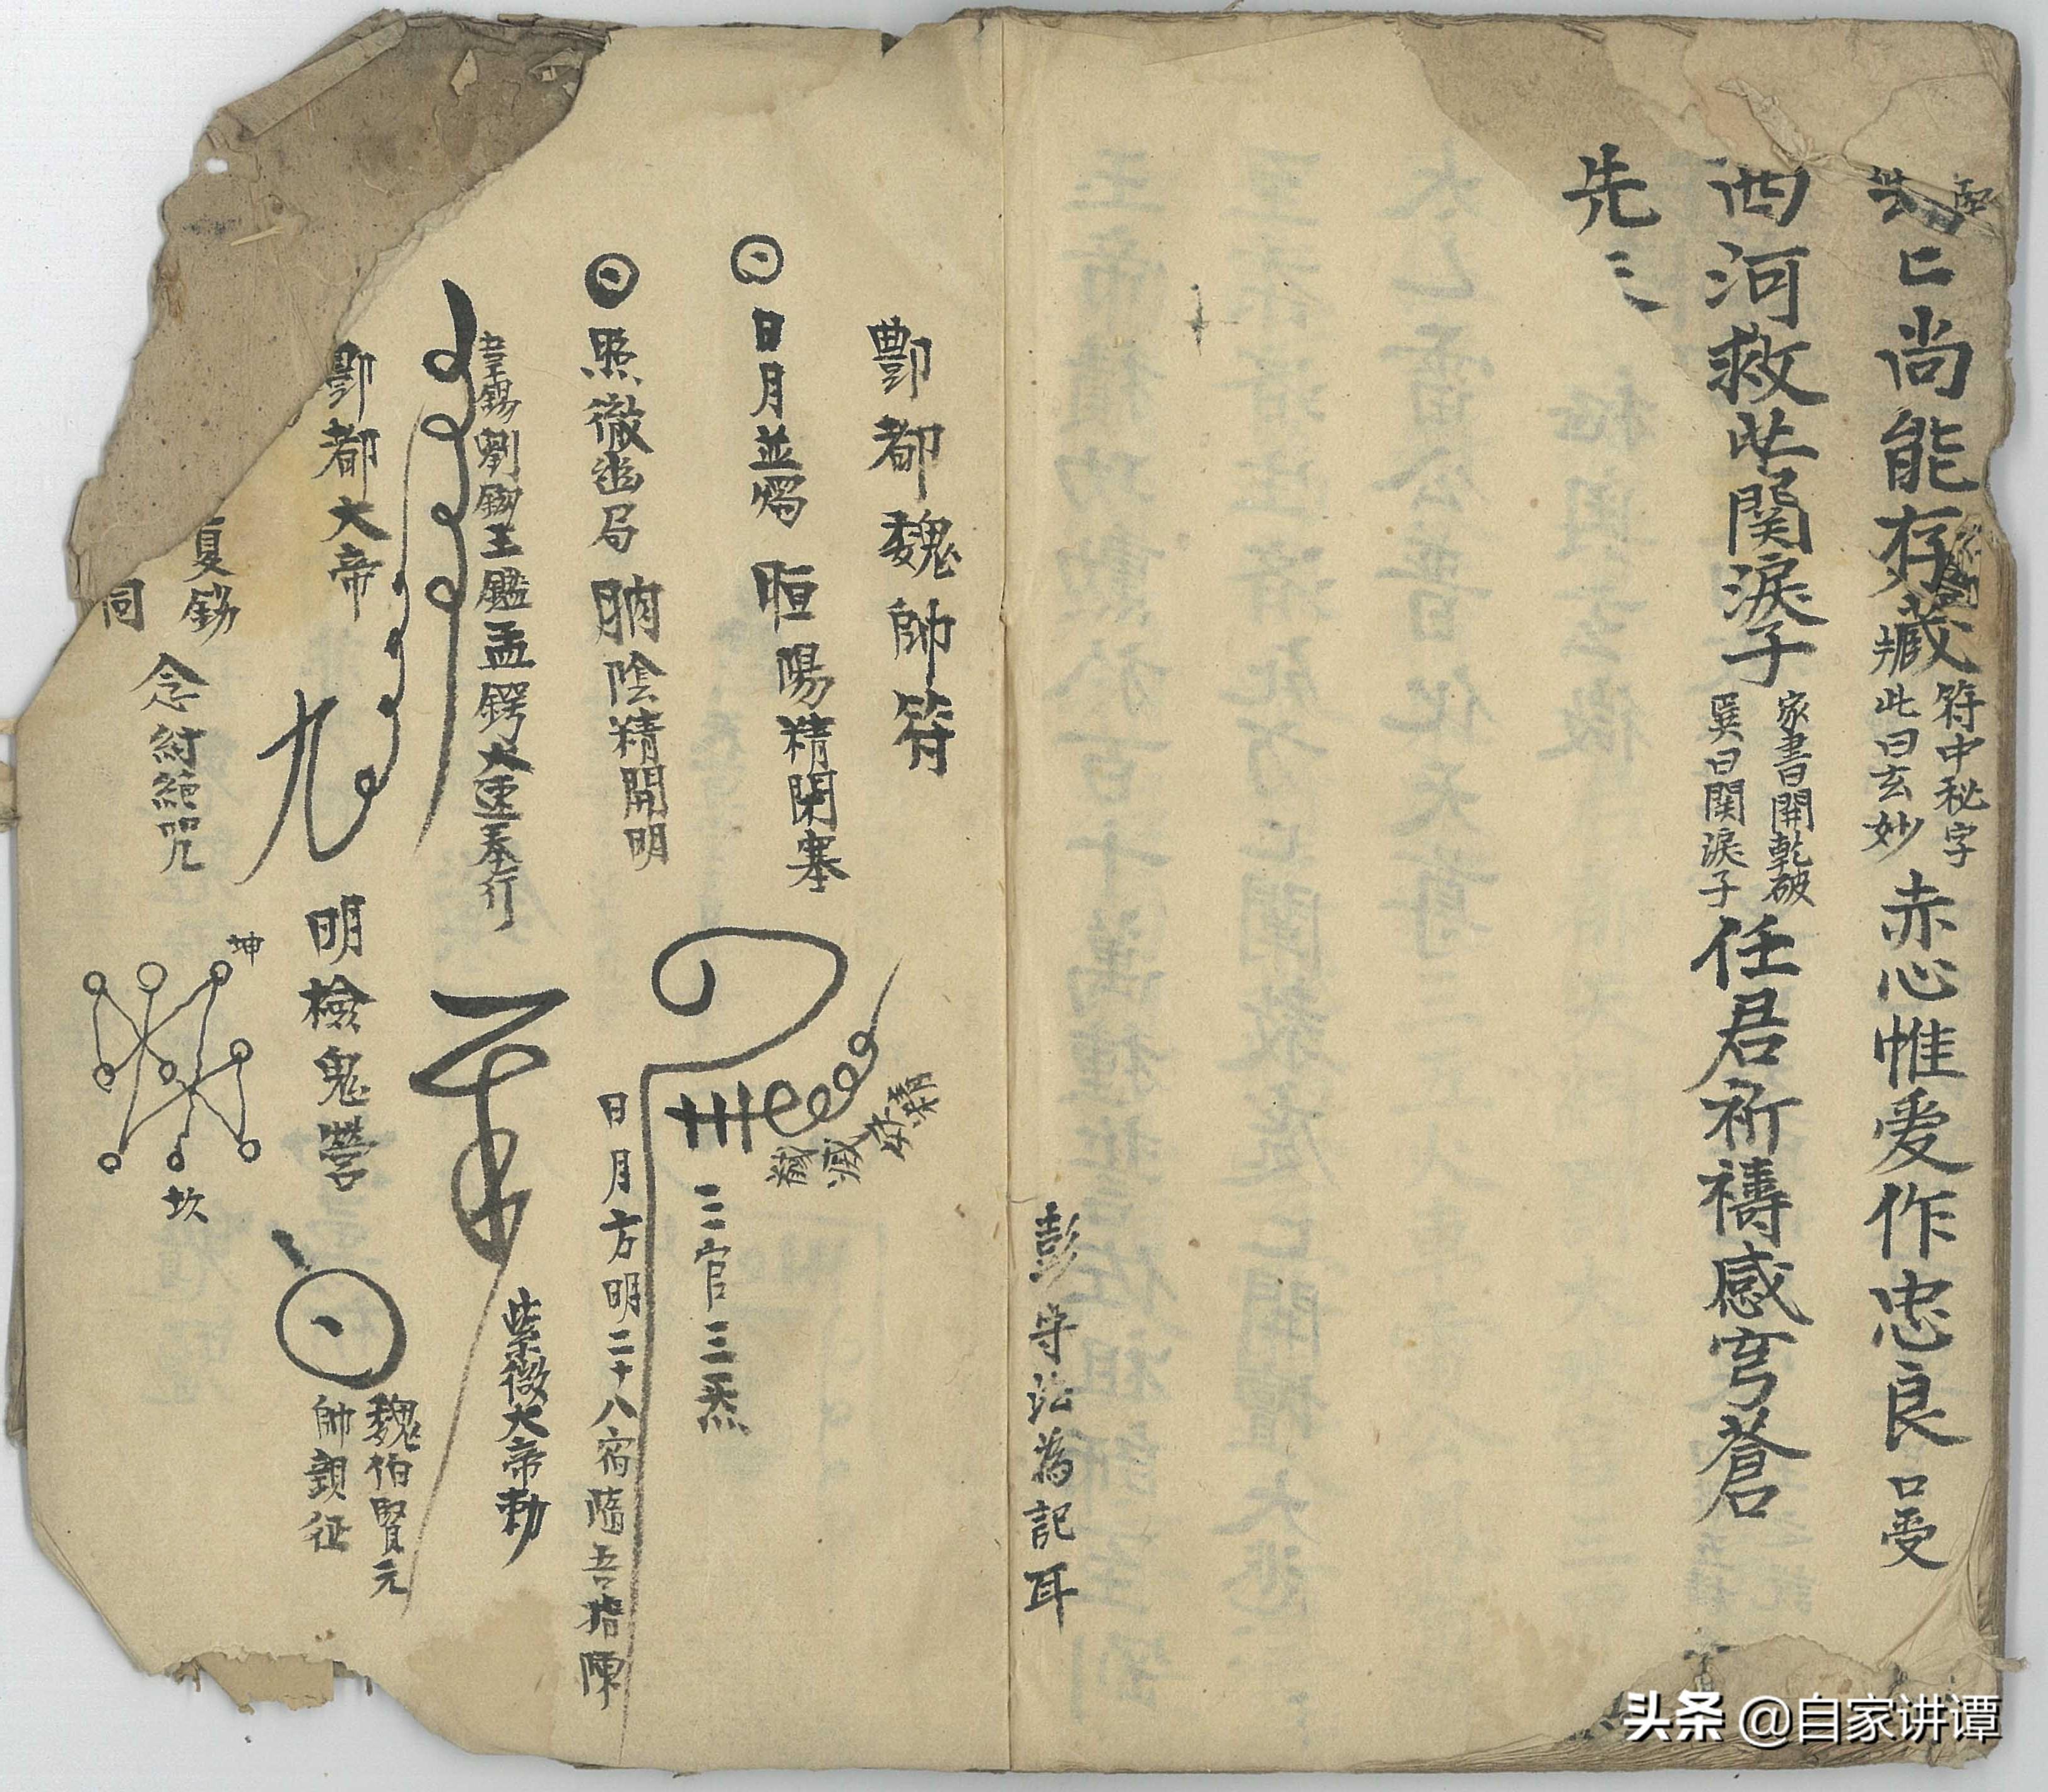 尚能存藏
符中秘字
此曰玄妙
赤心惟爱作忠良
口受
西河救
関淚子
家書曰開乾破
巽曰関淚子
任君祈禱感穹蒼
先
彭守法為記耳
酆都魏帥符
日月並燭
晅陽精閉塞
照徹幽局
朒陰精開明
三官三炁
日月方明二十八宿隨吾指陳
王鑑孟鍔火速奉行
紫微大帝勅
都大帝
九
明檢鬼營
魏伯賢元
帥親征
念紂絕咒
同
坤
坎
头条 @自家讲谭